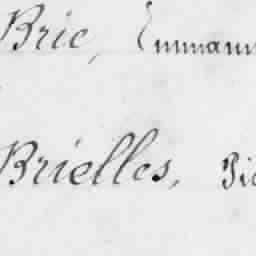 Brie, Emmanu
Brielles, Pi